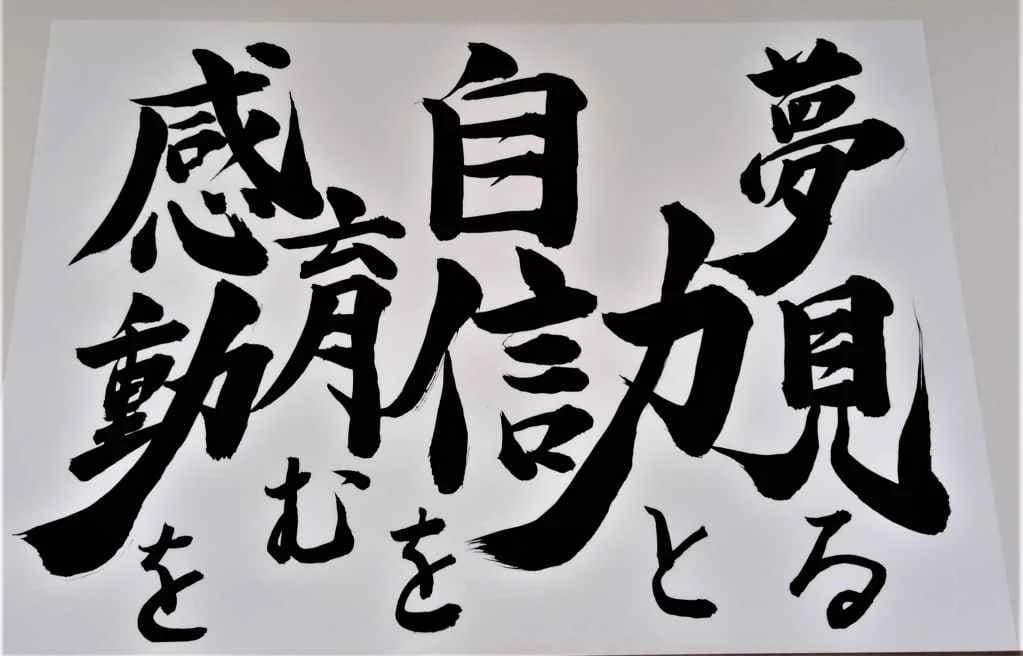 夢見る
力と
自信を
育む
感動を